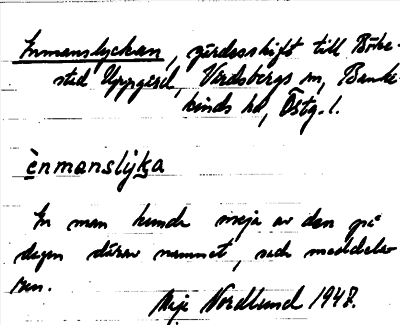 Enmanslyckan, gärdesskift till Böke-
stad Uppgård, Vårdsbergs sn, Banke-
kinds hd, Östg. l.
ènmanslỳka
En man kunde meja av den på
dagen därav namnet, sade meddelar
ren.
Nordlund 1948.